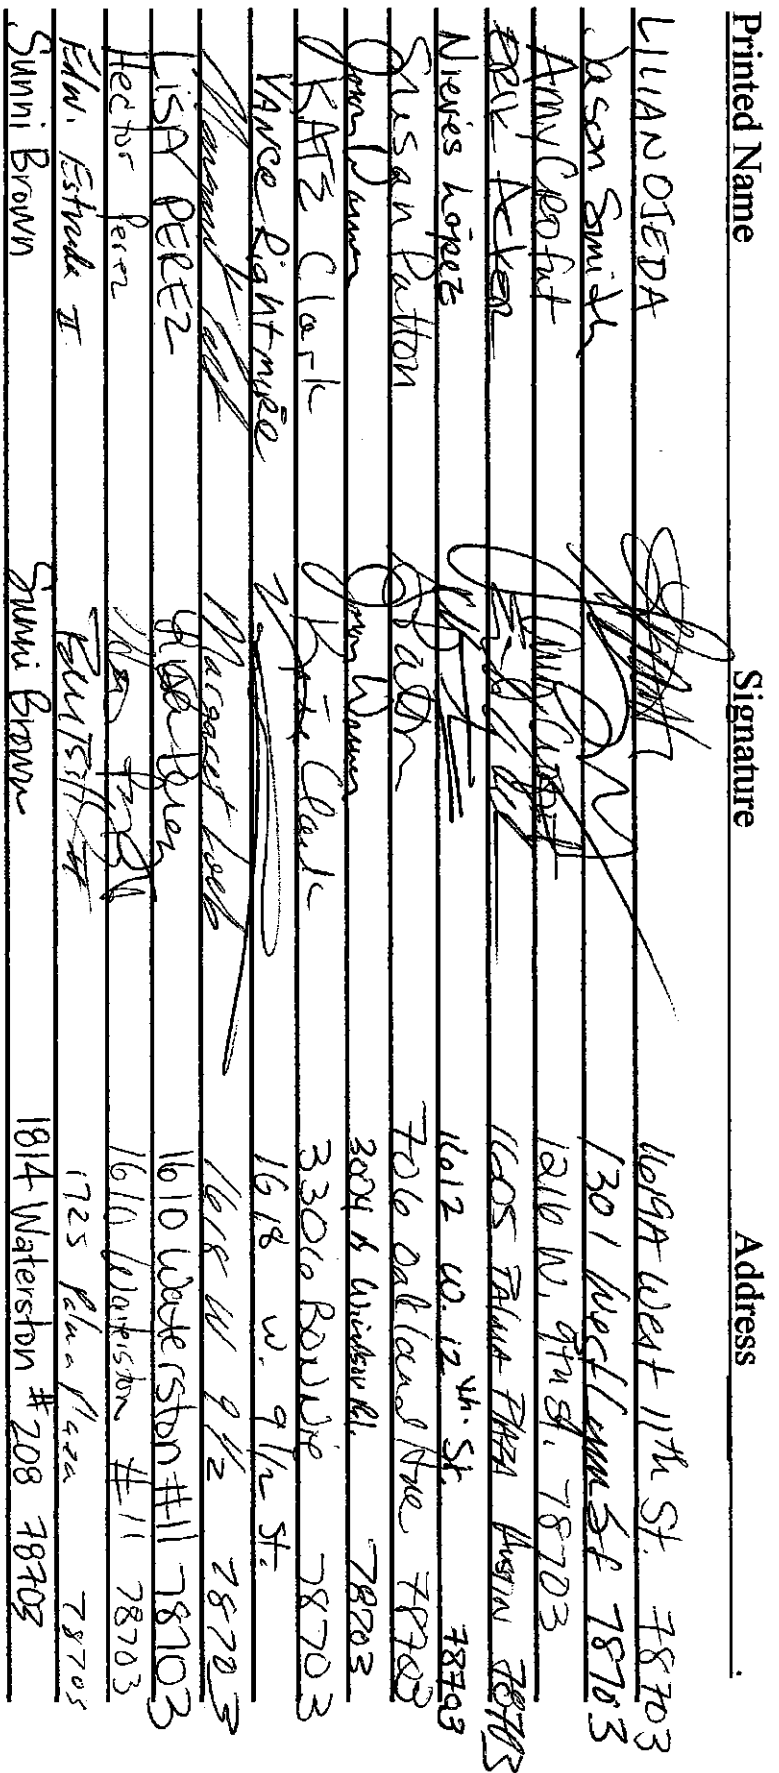 Printed Name Signature Address
LILIAN OJEDA 1609A West 11th St. 78703
Jason Smith 1301 West Lynn St 78703
Amy Crofut Amy Crofut 1216 W. 9th St. 78703
ERIK Acker 1605 PALMA PLAZA Austin 78703
Nieves López 1612 W. 12th. St. 78703
Susan Patton SPatton 706 Oakland Ave 78703
3004 Windsor Rd. 78703
J KATE Clark J Kate Clark 3301 Bonnie 78703
VANCE Rightmire 1618 W. 9 1/2 St.
Margaret 1618 W 9 1/2 78703
LISA PEREZ Lisa Perez 1610 Waterston #11 78703
Hector Perez 1610 Waterston #11 78703
Edw. Estrada II 1725 Palma Plaza 78703
Sunni Brown Sunni Brown 1814 Waterston #208 78703